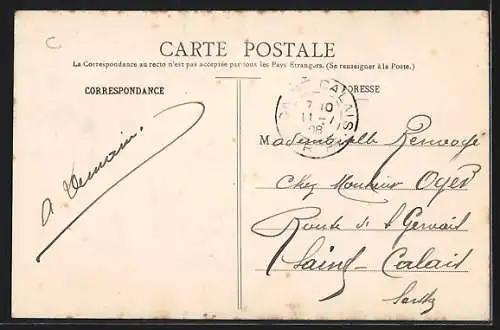 C
CARTE POSTALE
La Correspondance au recto n'est pas acceptée par tous les Pays Étrangers. (Se renseigner à la Poste.)
CORRESPONDANCE
ADRESSE
CALAIS
7 10
11 -
08
A demain.
Mademoiselle
Chez Monsieur Oger
Route de St Gervais
Saint-Calais
Sarthe